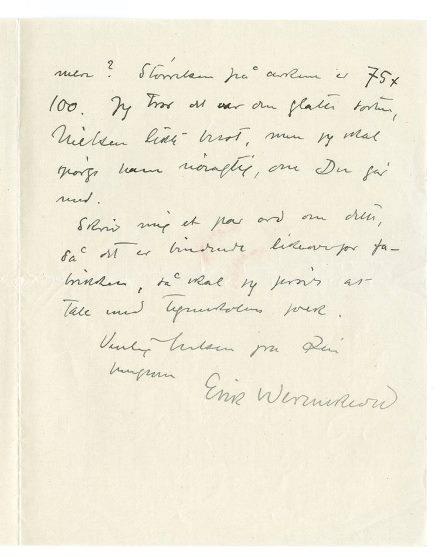 mere? Størrelsen på arken er 75 x
100. Jeg tror det var den glatte sorten,
Nielsen likte best, men jeg skal
spørge ham nøiagtig, om Du går
med.
Skriv mig et par ord om dette,
så det er bindende likeoverfor fa-
brikken, så skal jeg prøve at
tale med Tegneskolens folk.
Venlig hilsen fra Din
hengivne
Erik Werenskiold